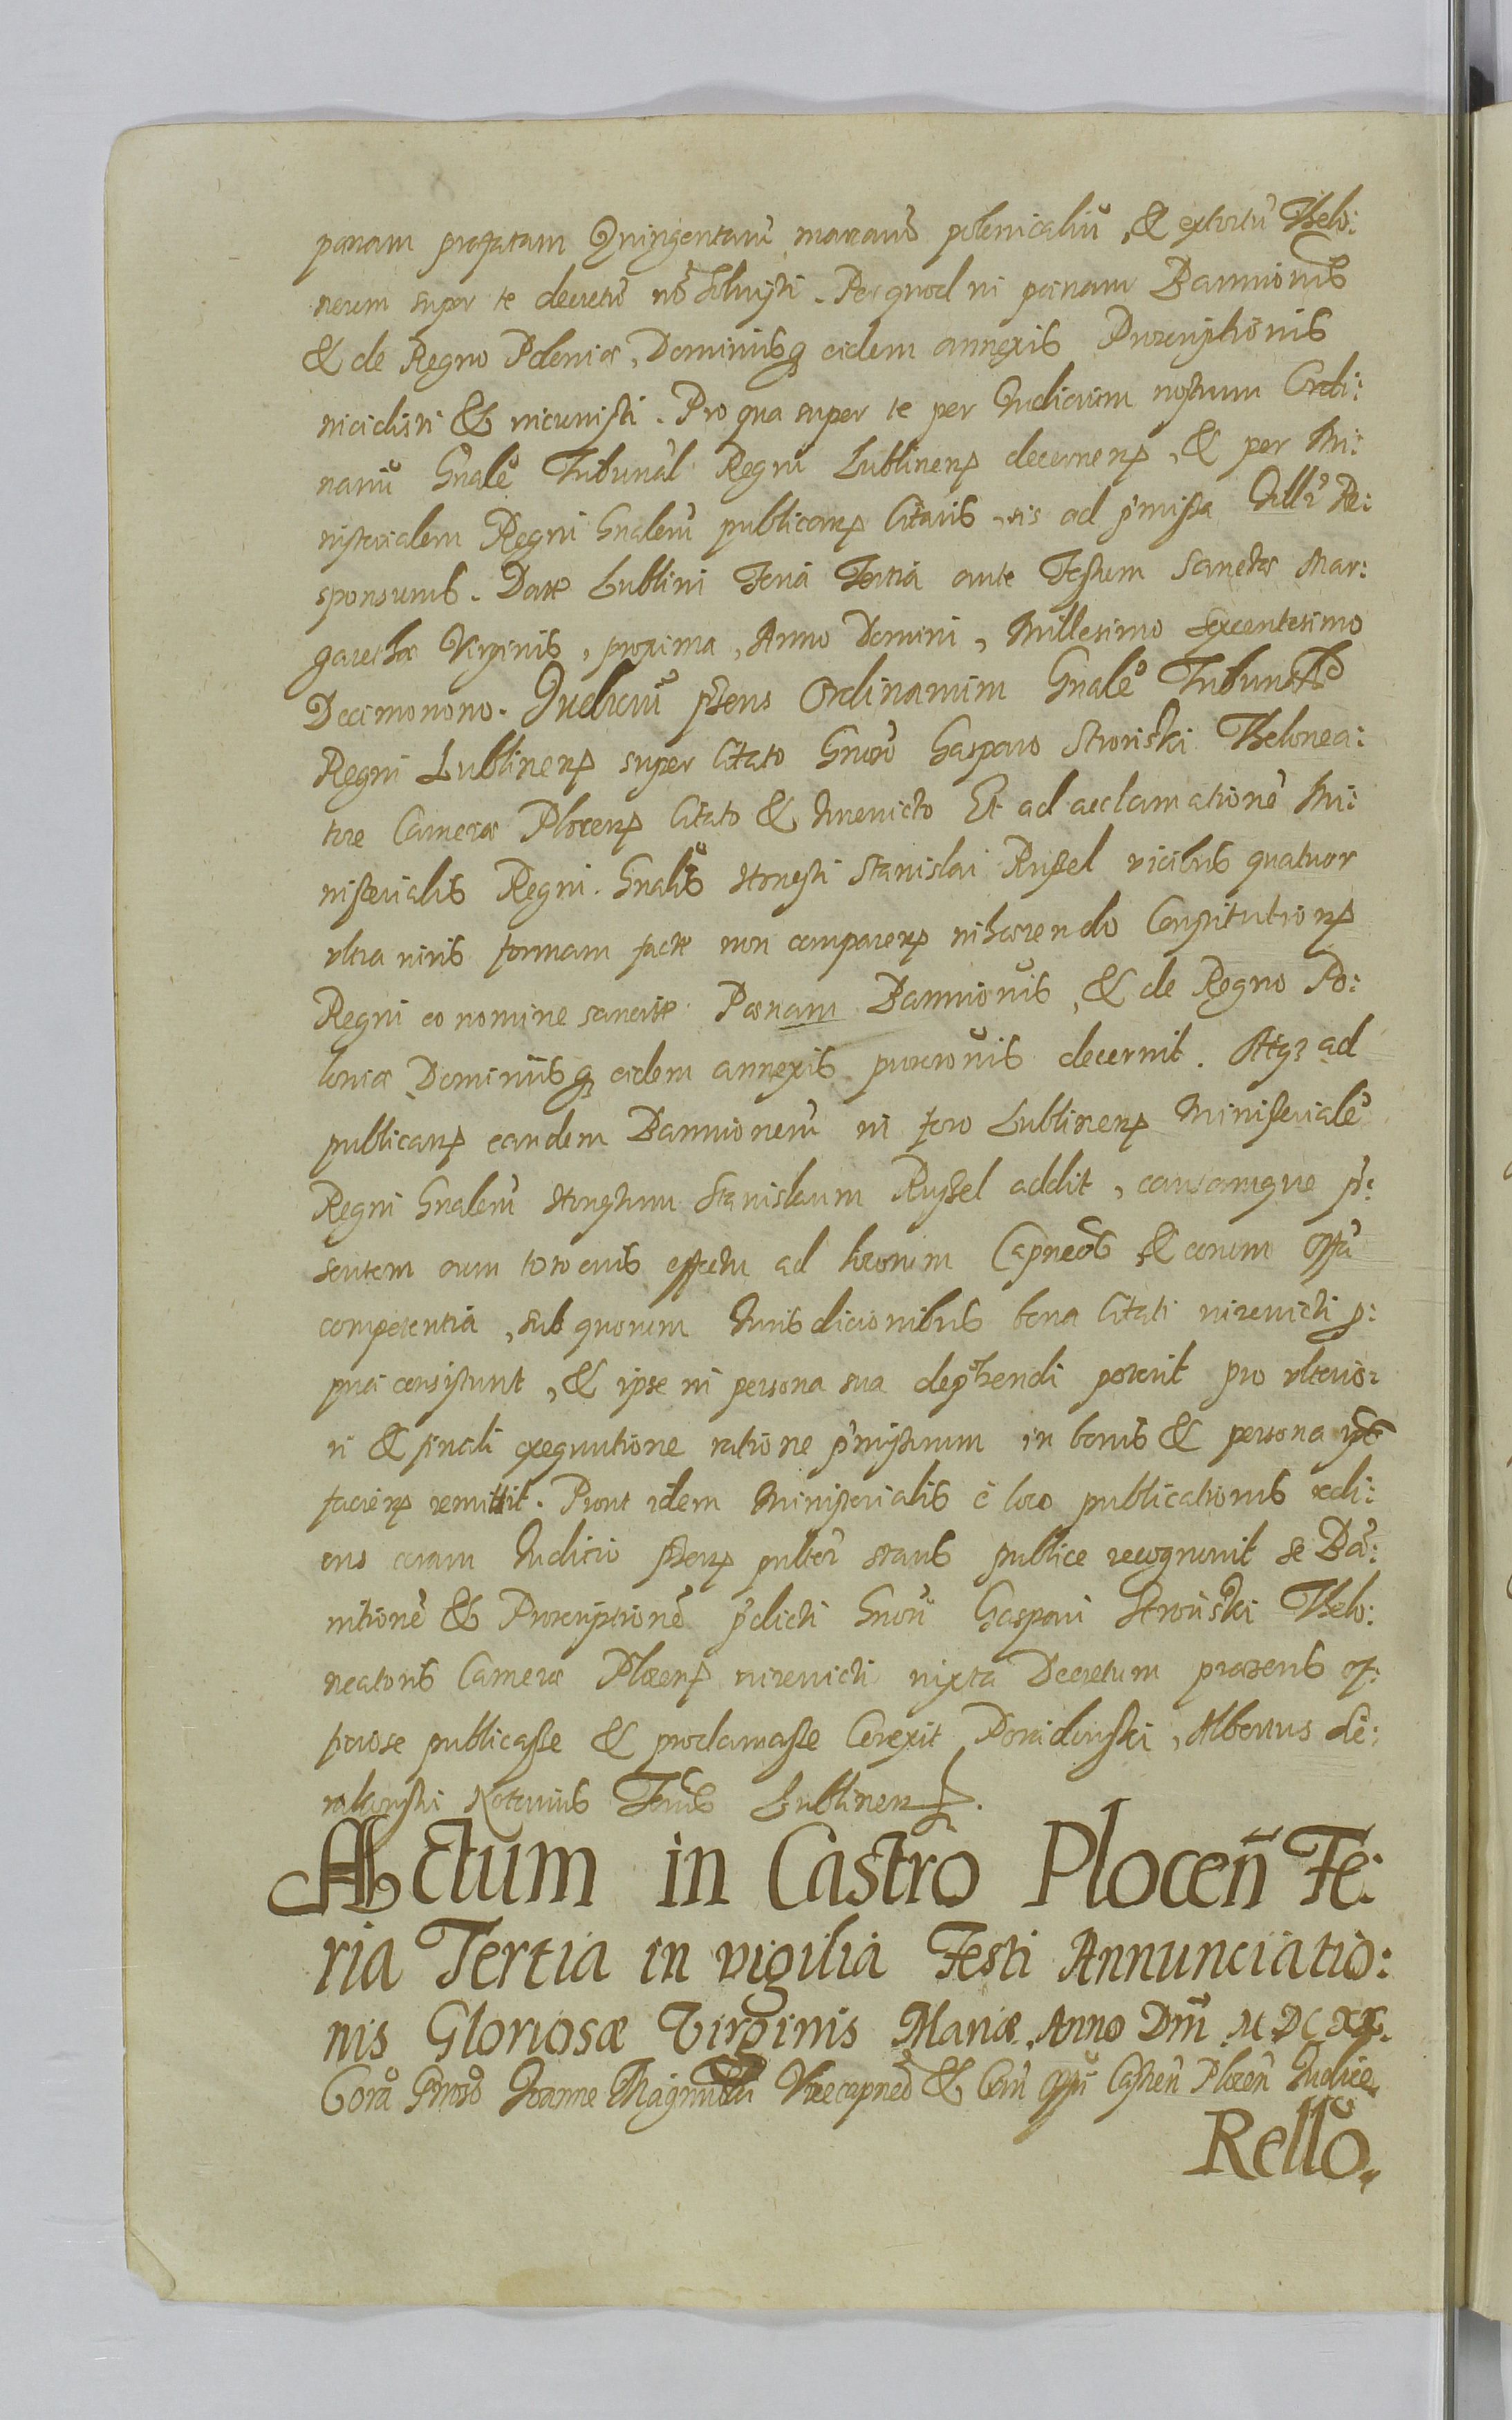 pœnam præfatam Quingentarũ marcarũ polonicaliũ, & extortũ Thelo:
neum super te decretũ nõ solvisti. Per quod in pœnam Bannionis
& de Regno Poloniæ, Dominiisq eidem annexis Proscriptionis
incidisti & incurristi. Pro qua super te per Iudicium nostrum Ordi:
nariũ Gnalẽ Tribunal Regni Lublinen decernen, & per Mi:
nisterialem Regni Gnalem publican Citaris, vis ad p̃missa Illi Re:
sponsurus. Datæ Lublini Feria Tertia ante Festum Sanctæ Mar:
garethæ Virginis, proxima, Anno Domini, Millesimo Sexcentesimo
Decimonono. Iudiciũ p̃sens Ordinarium Gnale Tribunalis
Regni Lublinen super Citato Gnoso Gasparo Stroiński Thelonea:
tore Cameræ Plocen Citato & Inevicto Et ad acclamationẽ Mi:
nisterialis Regni Gnalis Honesti Stanislai Russel vicibus quatuor
vltra iuris formam factæ non comparen inhærendo Constitution
Regni eo nomine sancitæ Pœnam Bannionis, & de Regno Po:
loniæ Dominiisq eidem annexis proscriõnis decernit. Atq3 ad
publican eandem Bannionem in foro Lublinen Ministerialẽ
Regni Gnalem Honestum Stanislaum Russel addit, causamque p̃:
sentem cum toto eius effectu ad locorum Capneos & eorum Offa
competentia, sub quorum Iurisdicionibus bona Citati inevicti p̃:
pria consistunt, & ipse in persona sua dep̃hendi poterit pro vlterio:
ri & finali exequutione ratione p̃missorum in bonis & persona ipsius
facien remittit. Prout idem Ministerialis è loco publicationis redi:
ens coram Iudicio p̃sen pulter stans publice recognovit se Bã:
nitionẽ & Proscriptionẽ p̃dicti Gnosi Gaspari Stroiński Thelo:
neatoris Cameræ Plocen inevicti iuxta Decretum præsens of:
ficiose publicasse & proclamasse Correxit, Albertus
Notarius Terris Lublinen.
Actum in Castro Plocen̄ Fe:
ria Tertia in vigilia Festi Annunciatio:
nis Gloriosæ Virginis Mariæ, Anno Dm̄ M.DC.XX.
Corã Gnoso Ioanne Magnuski Vicecapneo & Cau Offii Castren̄ Plocen̄ Iudice.
Rellõ.